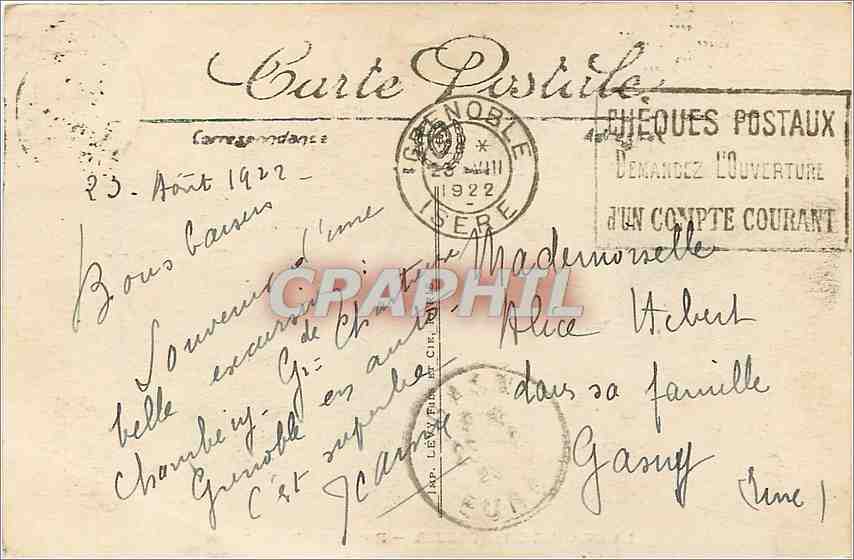 Carte Postale
Correspondance
GRENOBLE
* 
23 VIII
1922
ISERE
CHÈQUES POSTAUX
DEMANDEZ L'OUVERTURE
d'UN COMPTE COURANT
23. Août 1922 -
Bons baisers
Souvenir d'une
belle excursion :
Chambéry - Gr=de Chartreuse
Grenoble en auto -
C'est superbe -
Jeanne
IMP. LEVY FILS ET CIE, PARIS
Mademoiselle
Alice Hebert
dans sa famille
Gasny
(Eure)
GASNY
EURE
CPAPHIL